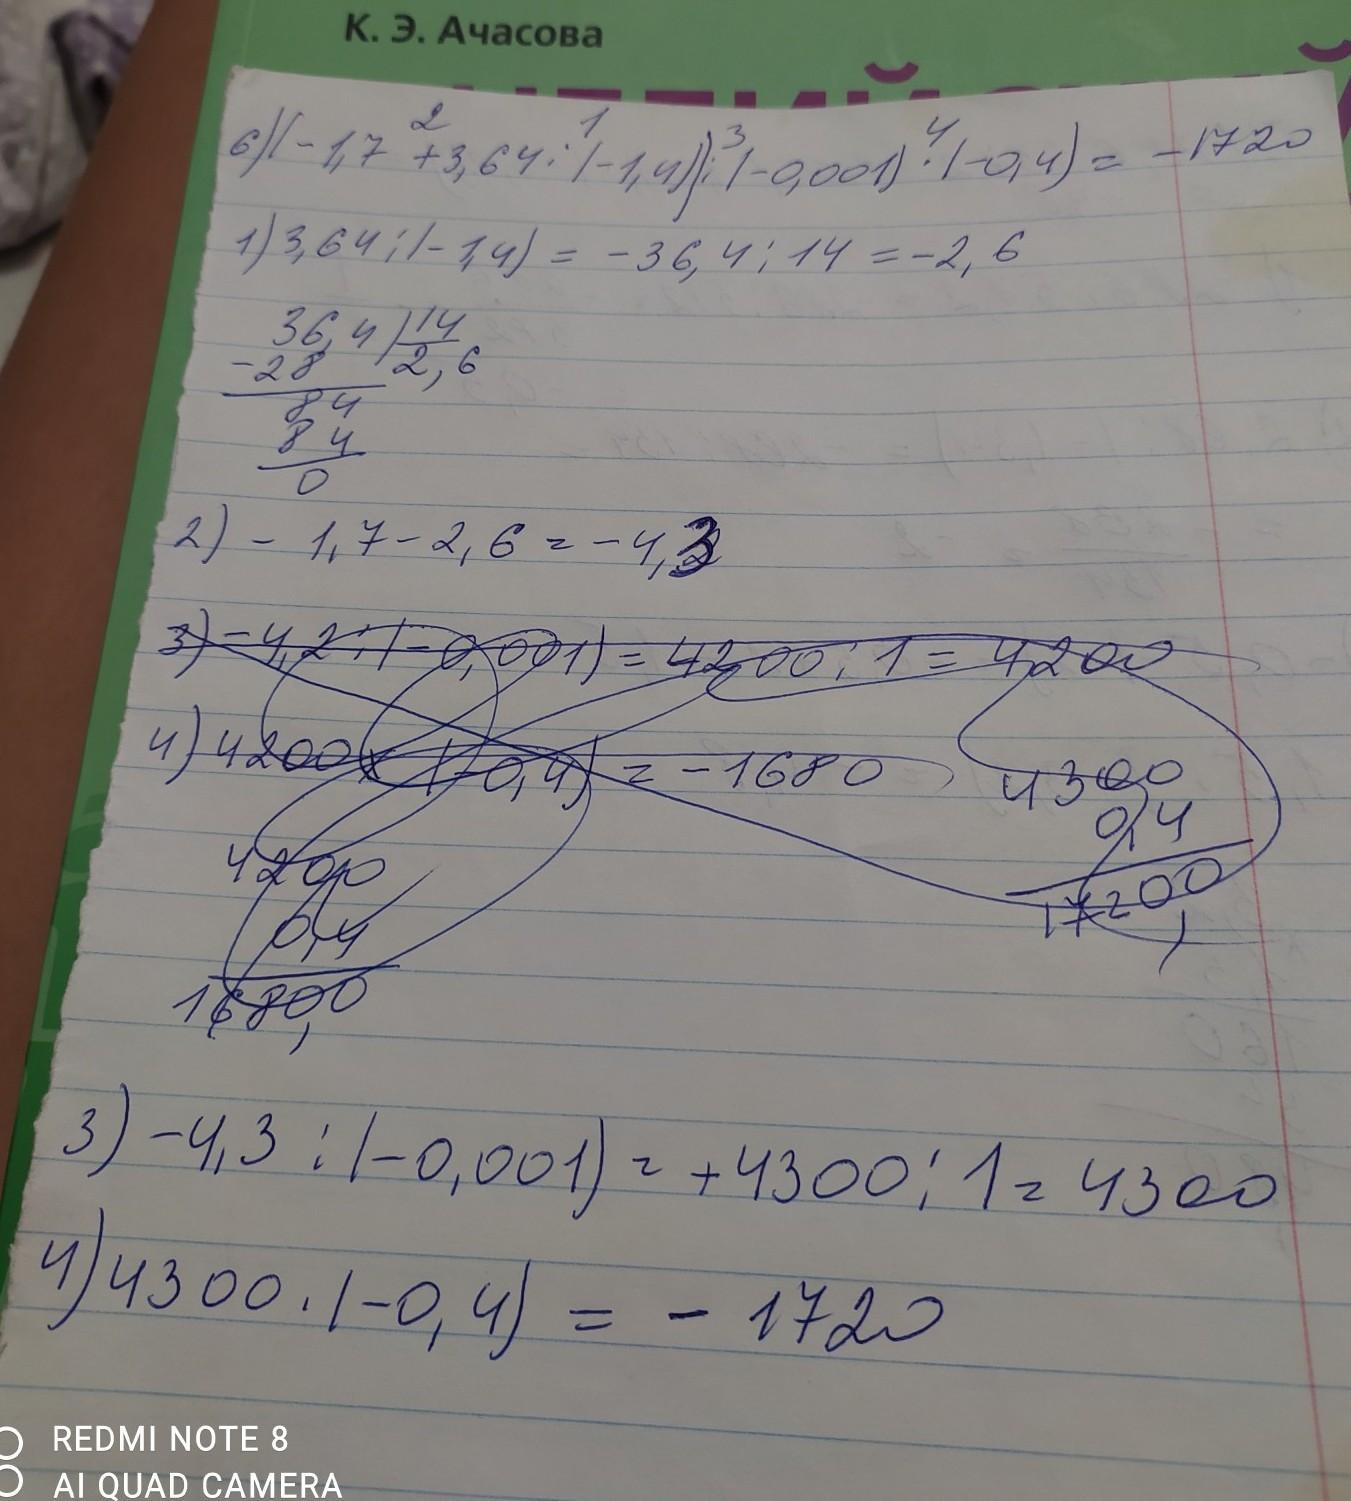 К. Э. Ачасова
2 1 3 4
6)(-1,7 +3,64:(-1,4)):(-0,001)·(-0,4) = -1720
1) 3,64:(-1,4) = -36,4:14 = -2,6
36,4 14
-28 2,6
84
84
0
2) - 1,7 - 2,6 = -4,3
3) -4,2:(-0,001) = 4200:1 = 4200
4) 4200x(-0,4) = -1680
4300
0,4
17200,
4200
0,4
1680,0
3) -4,3 : (-0,001) = +4300:1 = 4300
4) 4300·(-0,4) = - 1720
REDMI NOTE 8
AI QUAD CAMERA